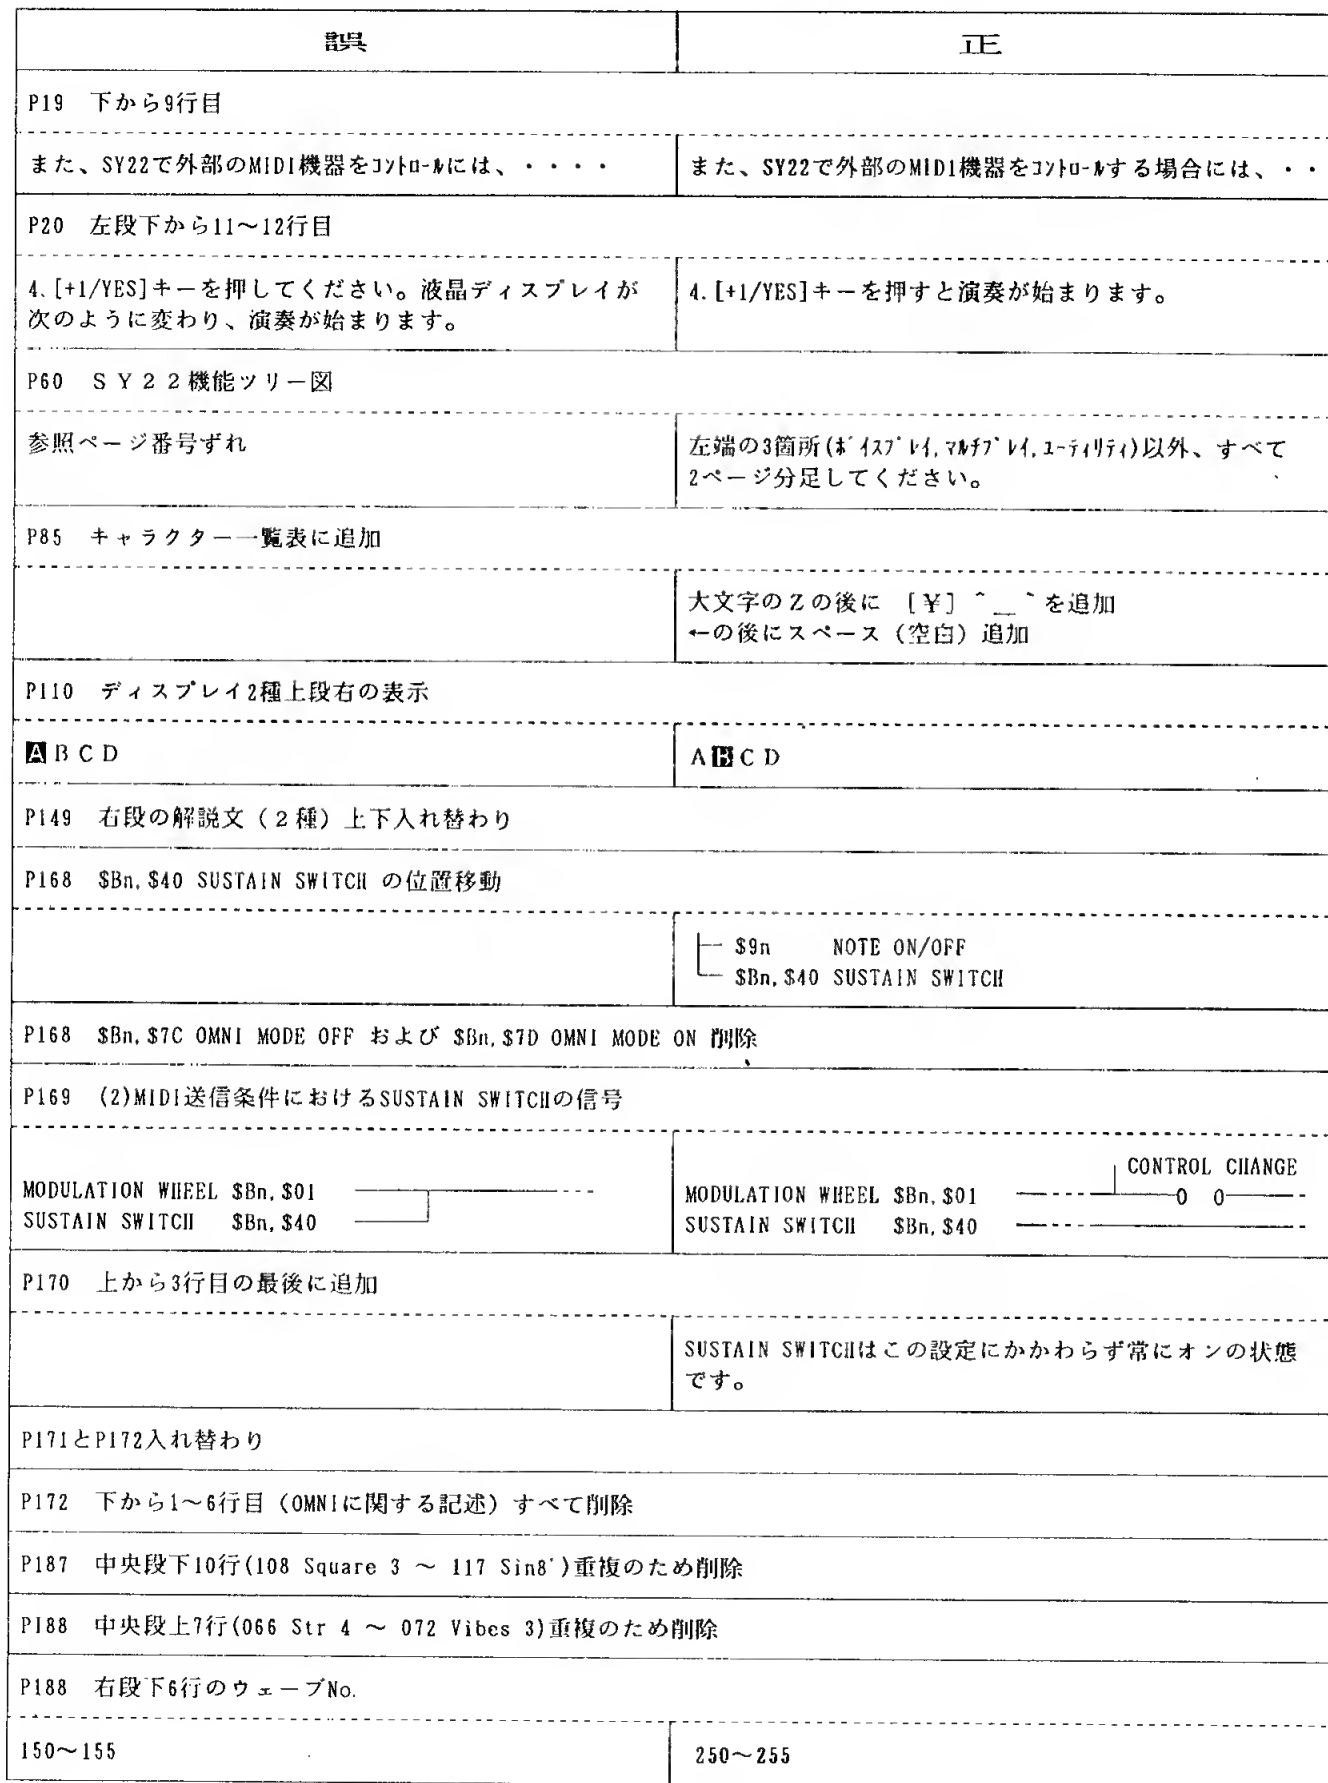 誤
正
P19 下から9行目
また、SY22で外部のMIDI機器をｺﾝﾄﾛｰﾙには、・・・・
また、SY22で外部のMIDI機器をｺﾝﾄﾛｰﾙする場合には、・・
P20 左段下から11～12行目
4.[+1/YES]キーを押してください。液晶ディスプレイが
次のように変わり、演奏が始まります。
4.[+1/YES]キーを押すと演奏が始まります。
P60 ＳＹ２２機能ツリー図
参照ページ番号ずれ
左端の3箇所(ﾎﾞｲｽﾌﾟﾚｲ,ﾏﾙﾁﾌﾟﾚｲ,ﾕｰﾃｨﾘﾃｨ)以外、すべて
2ページ分足してください。
P85 キャラクター一覧表に追加
大文字のＺの後に [￥] ＾＿｀を追加
←の後にスペース（空白）追加
P110 ディスプレイ2種上段右の表示
A B C D
A B C D
P149 右段の解説文（２種）上下入れ替わり
P168 $Bn,$40 SUSTAIN SWITCH の位置移動
$9n NOTE ON/OFF
$Bn,$40 SUSTAIN SWITCH
P168 $Bn,$7C OMNI MODE OFF および $Bn,$7D OMNI MODE ON 削除
P169 (2)MIDI送信条件におけるSUSTAIN SWITCHの信号
MODULATION WHEEL $Bn,$01
SUSTAIN SWITCH $Bn,$40
CONTROL CHANGE
MODULATION WHEEL $Bn,$01
SUSTAIN SWITCH $Bn,$40
P170 上から3行目の最後に追加
SUSTAIN SWITCHはこの設定にかかわらず常にオンの状態
です。
P171とP172入れ替わり
P172 下から1～6行目（OMNIに関する記述）すべて削除
P187 中央段下10行(108 Square 3 ～ 117 Sin8')重複のため削除
P188 中央段上7行(066 Str 4 ～ 072 Vibes 3)重複のため削除
P188 右段下6行のウェーブNo.
150～155
250～255